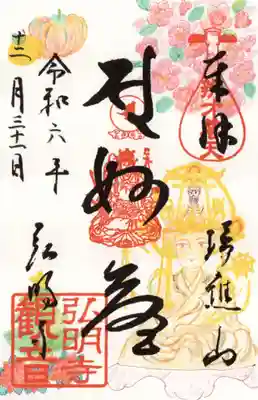 奉拝
瑞應山
妙
令和六年
十二月三十一日
弘明寺
弘明寺
観音